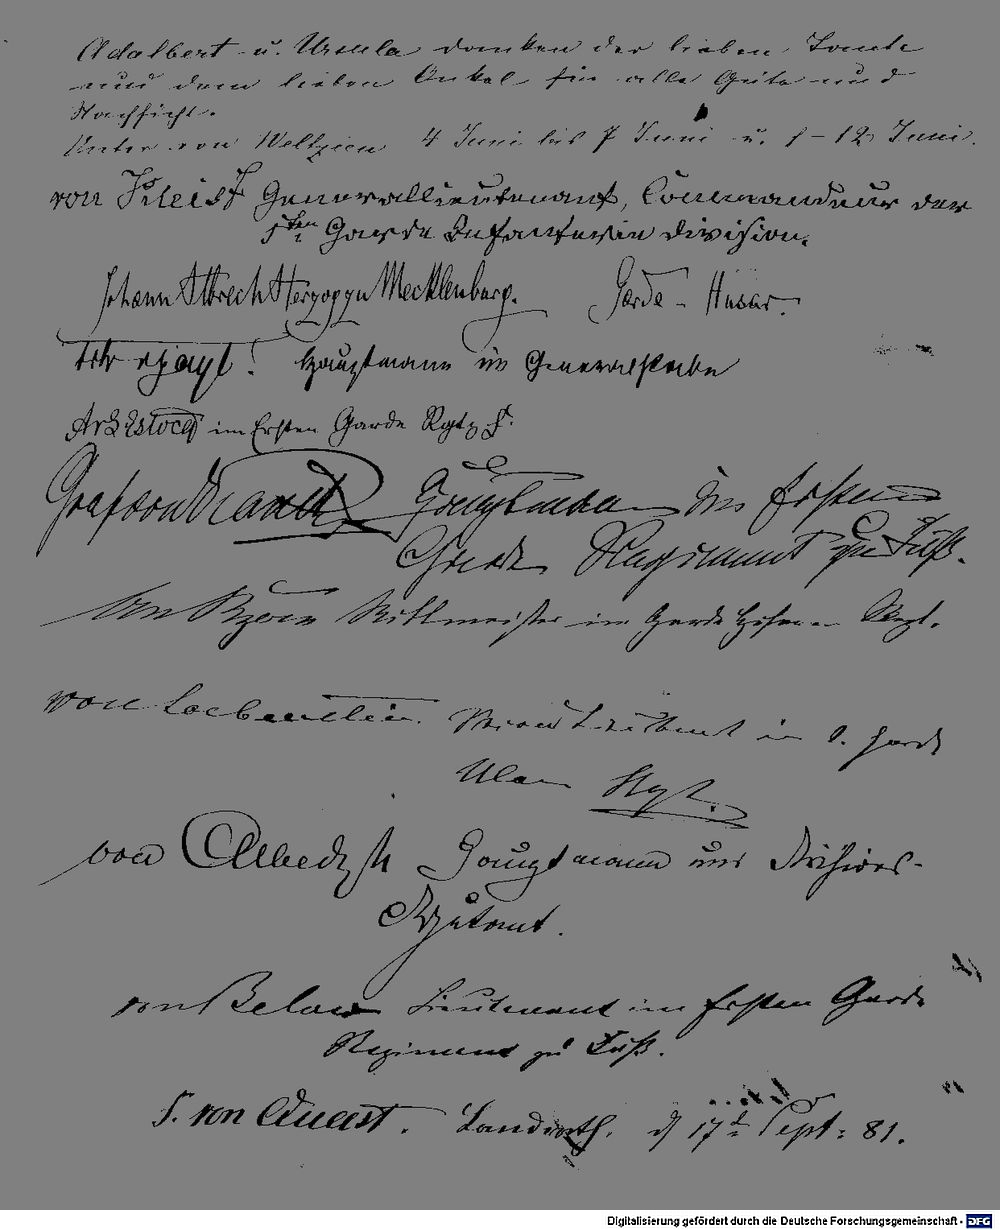 Adalbert u. Ursula danken der lieben Tante
und dem lieben Onkel für alle Güte und
Nachsicht.
von Weltzien 4 Juni bis 7 Juni u. 9 – 12 Juni.
von Kleist Generallieutenant, Commandeur der
1ten Garde Infanterie Division.
Johann Albrecht Herzog zu Mecklenburg. Garde - Husar.
Hauptmann im Generalstabe
im Ersten Garde Rgt z. F.
Graf von Kanitz Hauptmann im Ersten
Garde Regiment zu Fuß.
von Rittmeister im Garde Husaren Regt.
von Loebenstein. Premierlieutenant im 1. Garde
Ulan Rgt.
von Albedyll Hauptmann und Divisions-
Adjutant.
von Below Lieutenant im Ersten Garde
Regiment zu Fuß.
F. von Quast. Landrath. d 17t Sept: 81.
Digitalisierung gefördert durch die Deutsche Forschungsgemeinschaft - DFG